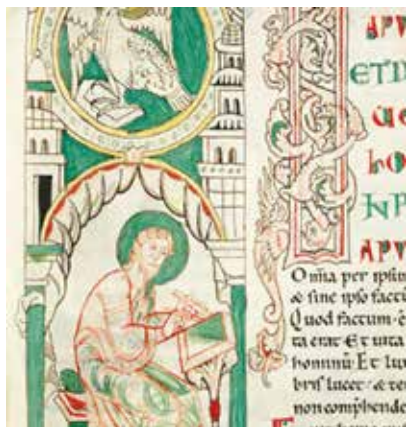 APV
ETD
UE
hO
NP
APV
Om̅ia per ipsu
& sine ipso factu
Quod factum · e
ta erat · Et uita
hominū · Et lux
bris lucet · & te
non comp̄hende